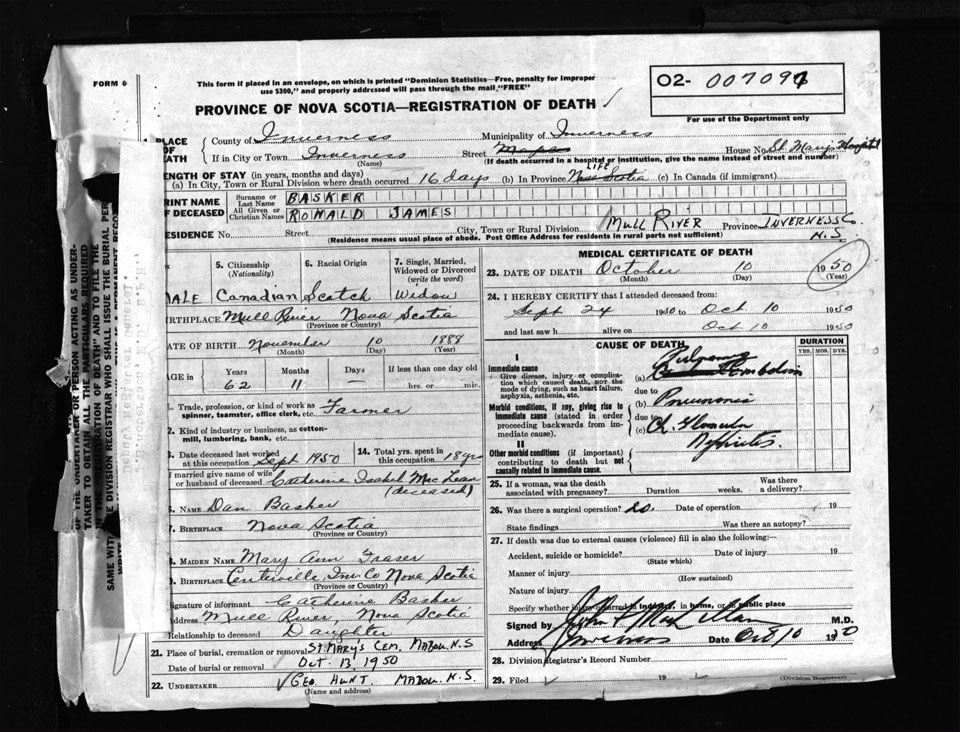 FORM 6
This form if placed in an envelope, on which is printed "Dominion Statistics—Free, penalty for improper
use $300," and properly addressed will pass through the mail "FREE"
PROVINCE OF NOVA SCOTIA—REGISTRATION OF DEATH
O2- 007097
For use of the Department only
PLACE OF DEATH
County of Inverness Municipality of Inverness
If in City or Town Inverness Street House No. St. Mary's Hospital
(Name) (If death occurred in a hospital or institution, give the name instead of street and number)
LENGTH OF STAY (in years, months and days)
(a) In City, Town or Rural Division where death occurred 16 days (b) In Province LIFE Nova Scotia (c) In Canada (if immigrant)
PRINT NAME OF DECEASED
Surname or Last Name BASKER
All Given or Christian Names RONALD JAMES
RESIDENCE No. Street City, Town or Rural Division MULL RIVER Province INVERNESS C. N.S.
(Residence means usual place of abode. Post Office Address for residents in rural parts not sufficient)
5. Citizenship (Nationality) 6. Racial Origin 7. Single, Married, Widowed or Divorced (write the word)
MALE Canadian Scotch Widow
BIRTHPLACE Mull River Nova Scotia
(Province or Country)
DATE OF BIRTH November 10 1888
(Month) (Day) (Year)
AGE in Years Months Days If less than one day old
62 11 — hrs. or min.
1. Trade, profession or kind of work as spinner, teamster, office clerk, etc. Farmer
2. Kind of industry or business, as cotton-mill, lumbering, bank, etc.
3. Date deceased last worked at this occupation Sept 1950 14. Total yrs. spent in this occupation 18 yrs
If married give name of wife or husband of deceased Catherine Isabel MacLean
(deceased)
6. NAME Dan Basker
7. BIRTHPLACE Nova Scotia
(Province or Country)
8. MAIDEN NAME Mary Ann Fraser
9. BIRTHPLACE Centerville, Inv. Co Nova Scotia
(Province or Country)
Signature of informant Catherine Basker
Address Mull River, Nova Scotia
Relationship to deceased Daughter
21. Place of burial, cremation or removal ST. MARY'S CEM. MABOU. N.S
Date of burial or removal Oct. 13, 1950
22. UNDERTAKER GEO. HUNT. MABOU. N.S.
(Name and address)
MEDICAL CERTIFICATE OF DEATH
23. DATE OF DEATH October 10 1950
(Month) (Day) (Year)
24. I HEREBY CERTIFY that I attended deceased from:
Sept 24 1950 to Oct 10 1950
and last saw h alive on Oct 10 1950
CAUSE OF DEATH DURATION
YRS. MOS. DYS.
I
Immediate cause
Give disease, injury or complication which caused death, not the mode of dying, such as heart failure, asphyxia, asthenia, etc.
(a) Pulmonary Embolism
due to
Morbid conditions, if any, giving rise to immediate cause (stated in order proceeding backwards from immediate cause).
(b) Pneumonia
due to
(c) Ch. Nephritis
II
Other morbid conditions (if important) contributing to death but not causally related to immediate cause.
25. If a woman, was the death associated with pregnancy? Duration weeks. Was there a delivery?
26. Was there a surgical operation? no. Date of operation 19
State findings Was there an autopsy?
27. If death was due to external causes (violence) fill in also the following:—
Accident, suicide or homicide? Date of injury 19
(State which)
Manner of injury
(How sustained)
Nature of injury
Specify whether injury occurred in industry, in home, or in public place
Signed by M.D.
Address Inverness Date Oct 10 1950
28. Division Registrar's Record Number
29. Filed 19
(Division Registrar)
OF THE UNDERTAKER OR PERSON ACTING AS UNDER-
TAKER TO OBTAIN ALL THE PARTICULARS REQUIRED